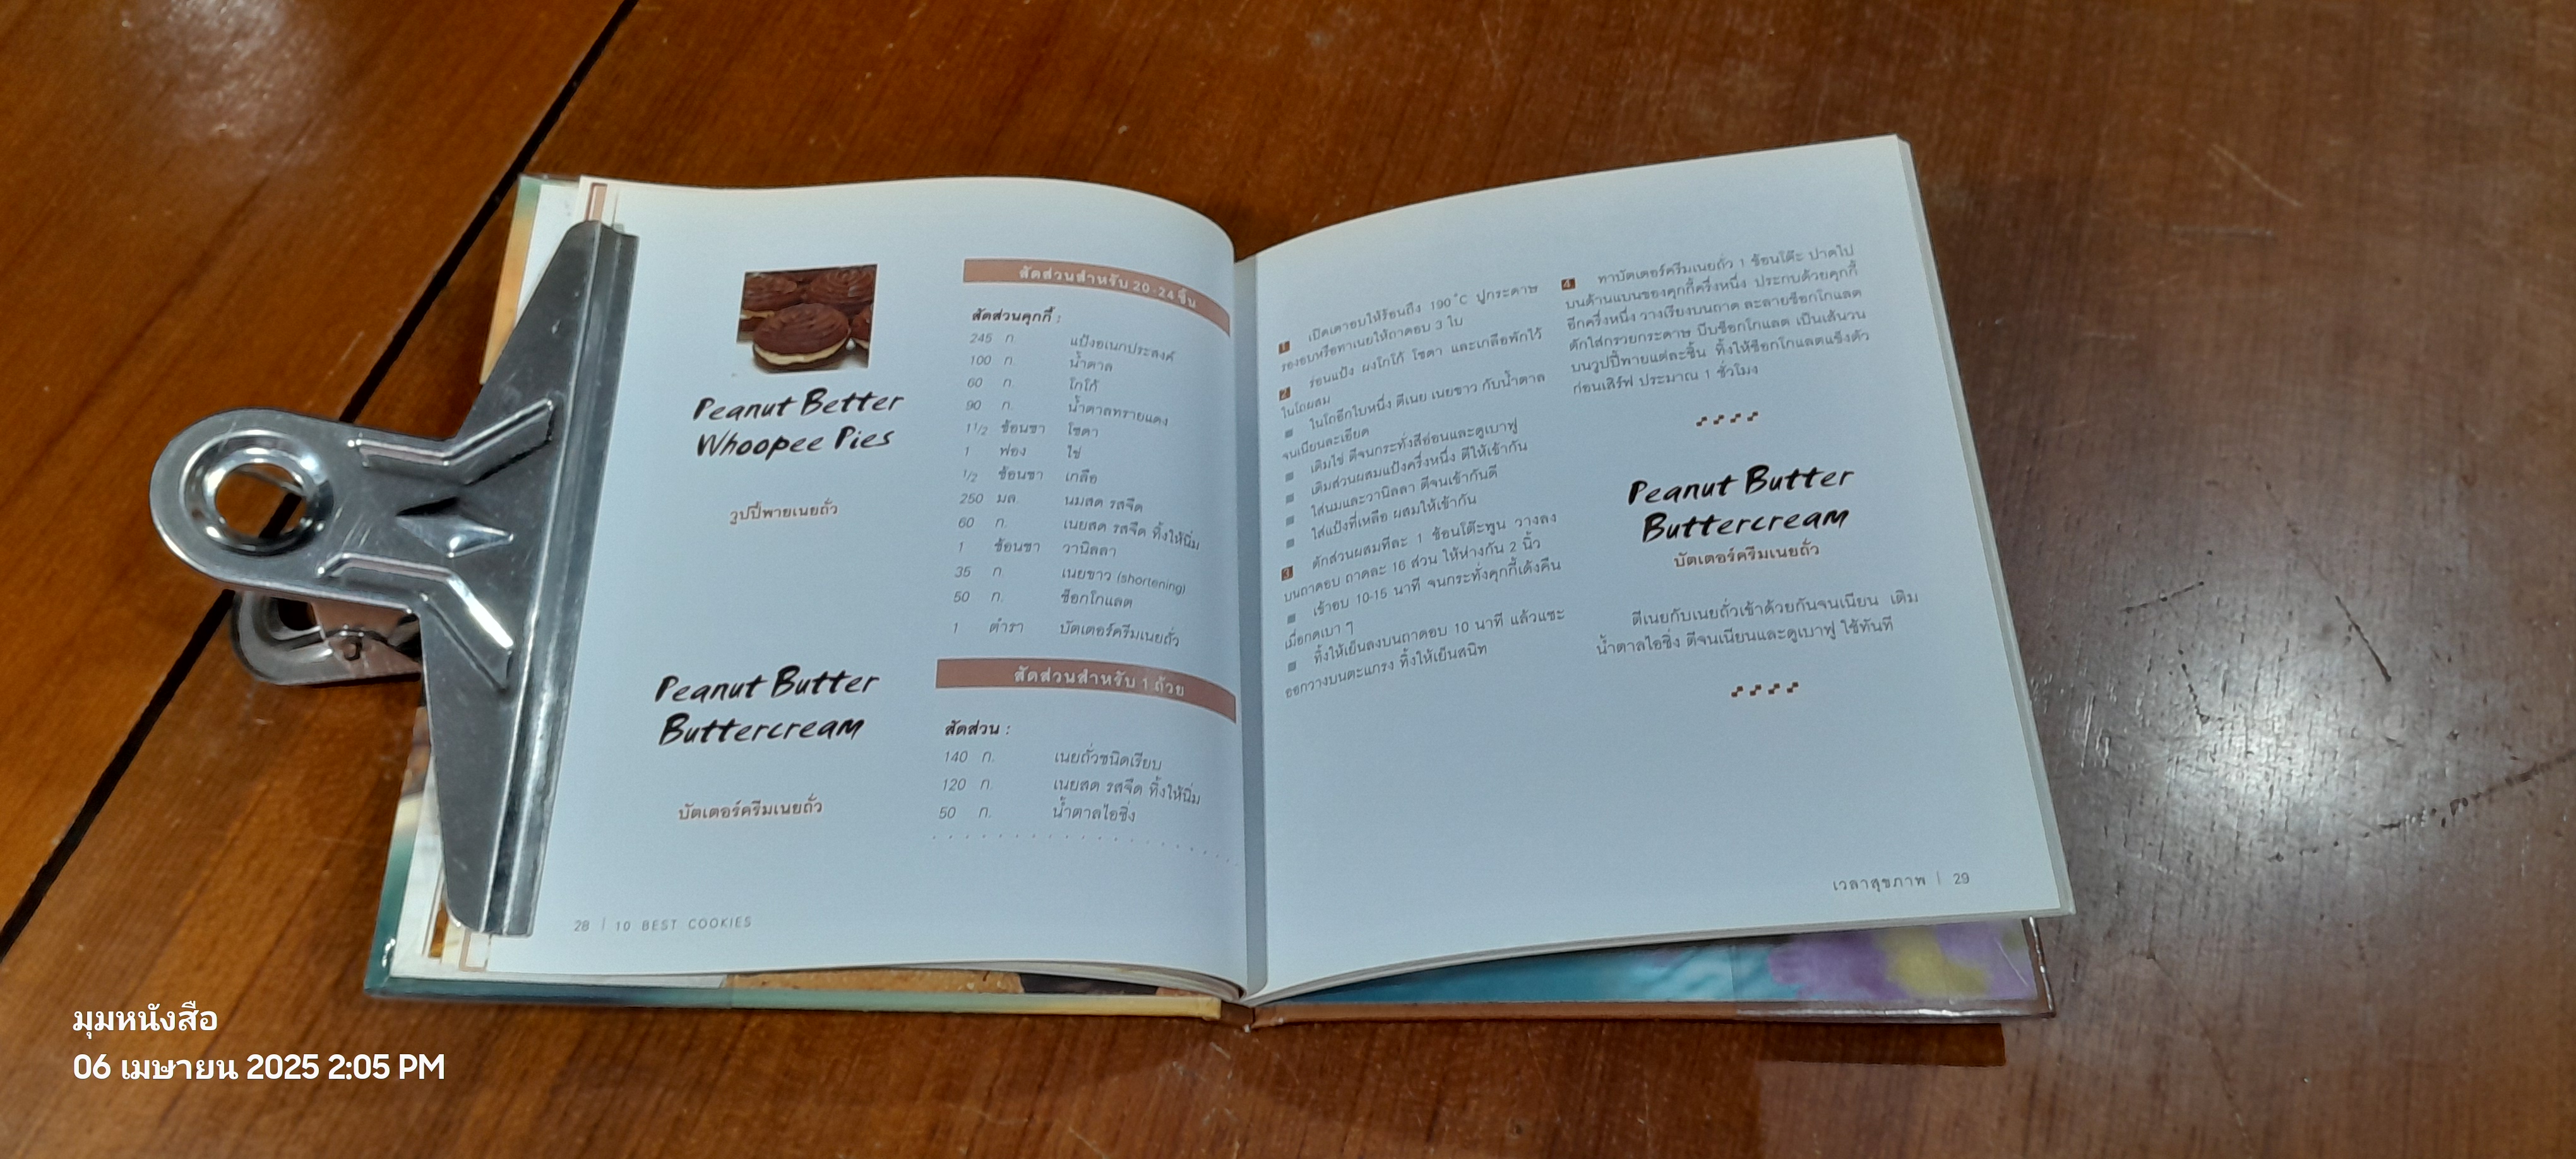 Peanut Better
Whoopee Pies
วูปปี้พายเนยถั่ว
สัดส่วนสำหรับ 20-24 ชิ้น
สัดส่วนคุกกี้ :
245 ก. แป้งอเนกประสงค์
100 ก. น้ำตาล
60 ก. โกโก้
90 ก. น้ำตาลทรายแดง
1 1/2 ช้อนชา โซดา
1 ฟอง ไข่
1/2 ช้อนชา เกลือ
250 มล. นมสด รสจืด
60 ก. เนยสด รสจืด ทิ้งให้นิ่ม
1 ช้อนชา วานิลลา
35 ก. เนยขาว (shortening)
50 ก. ช็อกโกแลต
1 ตำรา บัตเตอร์ครีมเนยถั่ว
Peanut Butter
Buttercream
บัตเตอร์ครีมเนยถั่ว
สัดส่วนสำหรับ 1 ถ้วย
สัดส่วน :
140 ก. เนยถั่วชนิดเรียบ
120 ก. เนยสด รสจืด ทิ้งให้นิ่ม
50 ก. น้ำตาลไอซิ่ง
28 | 10 BEST COOKIES
1 เปิดเตาอบให้ร้อนถึง 190°C ปูกระดาษ
รองอบหรือทาเนยให้ถาดอบ 3 ใบ
2 ร่อนแป้ง ผงโกโก้ โซดา และเกลือพักไว้
ในโถผสม
ในโถอีกใบหนึ่ง ตีเนย เนยขาว กับน้ำตาล
จนเนียนละเอียด
เติมไข่ ตีจนกระทั่งสีอ่อนและดูเบาฟู
เติมส่วนผสมแป้งครึ่งหนึ่ง ตีให้เข้ากัน
ใส่นมและวานิลลา ตีจนเข้ากันดี
ใส่แป้งที่เหลือ ผสมให้เข้ากัน
3 ตักส่วนผสมทีละ 1 ช้อนโต๊ะพูน วางลง
บนถาดอบ ถาดละ 16 ส่วน ให้ห่างกัน 2 นิ้ว
เข้าอบ 10-15 นาที จนกระทั่งคุกกี้เด้งคืน
เมื่อกดเบา ๆ
ทิ้งให้เย็นลงบนถาดอบ 10 นาที แล้วแซะ
ออกวางบนตะแกรง ทิ้งให้เย็นสนิท
4 ทาบัตเตอร์ครีมเนยถั่ว 1 ช้อนโต๊ะ ปาดไป
บนด้านแบนของคุกกี้ครึ่งหนึ่ง ประกบด้วยคุกกี้
อีกครึ่งหนึ่ง วางเรียงบนถาด ละลายช็อกโกแลต
ตักใส่กรวยกระดาษ บีบช็อกโกแลต เป็นเส้นวน
บนวูปปี้พายแต่ละชิ้น ทิ้งให้ช็อกโกแลตแข็งตัว
ก่อนเสิร์ฟ ประมาณ 1 ชั่วโมง
Peanut Butter
Buttercream
บัตเตอร์ครีมเนยถั่ว
ตีเนยกับเนยถั่วเข้าด้วยกันจนเนียน เติม
น้ำตาลไอซิ่ง ตีจนเนียนและดูเบาฟู ใช้ทันที
เวลาสุขภาพ | 29
มุมหนังสือ
06 เมษายน 2025 2:05 PM